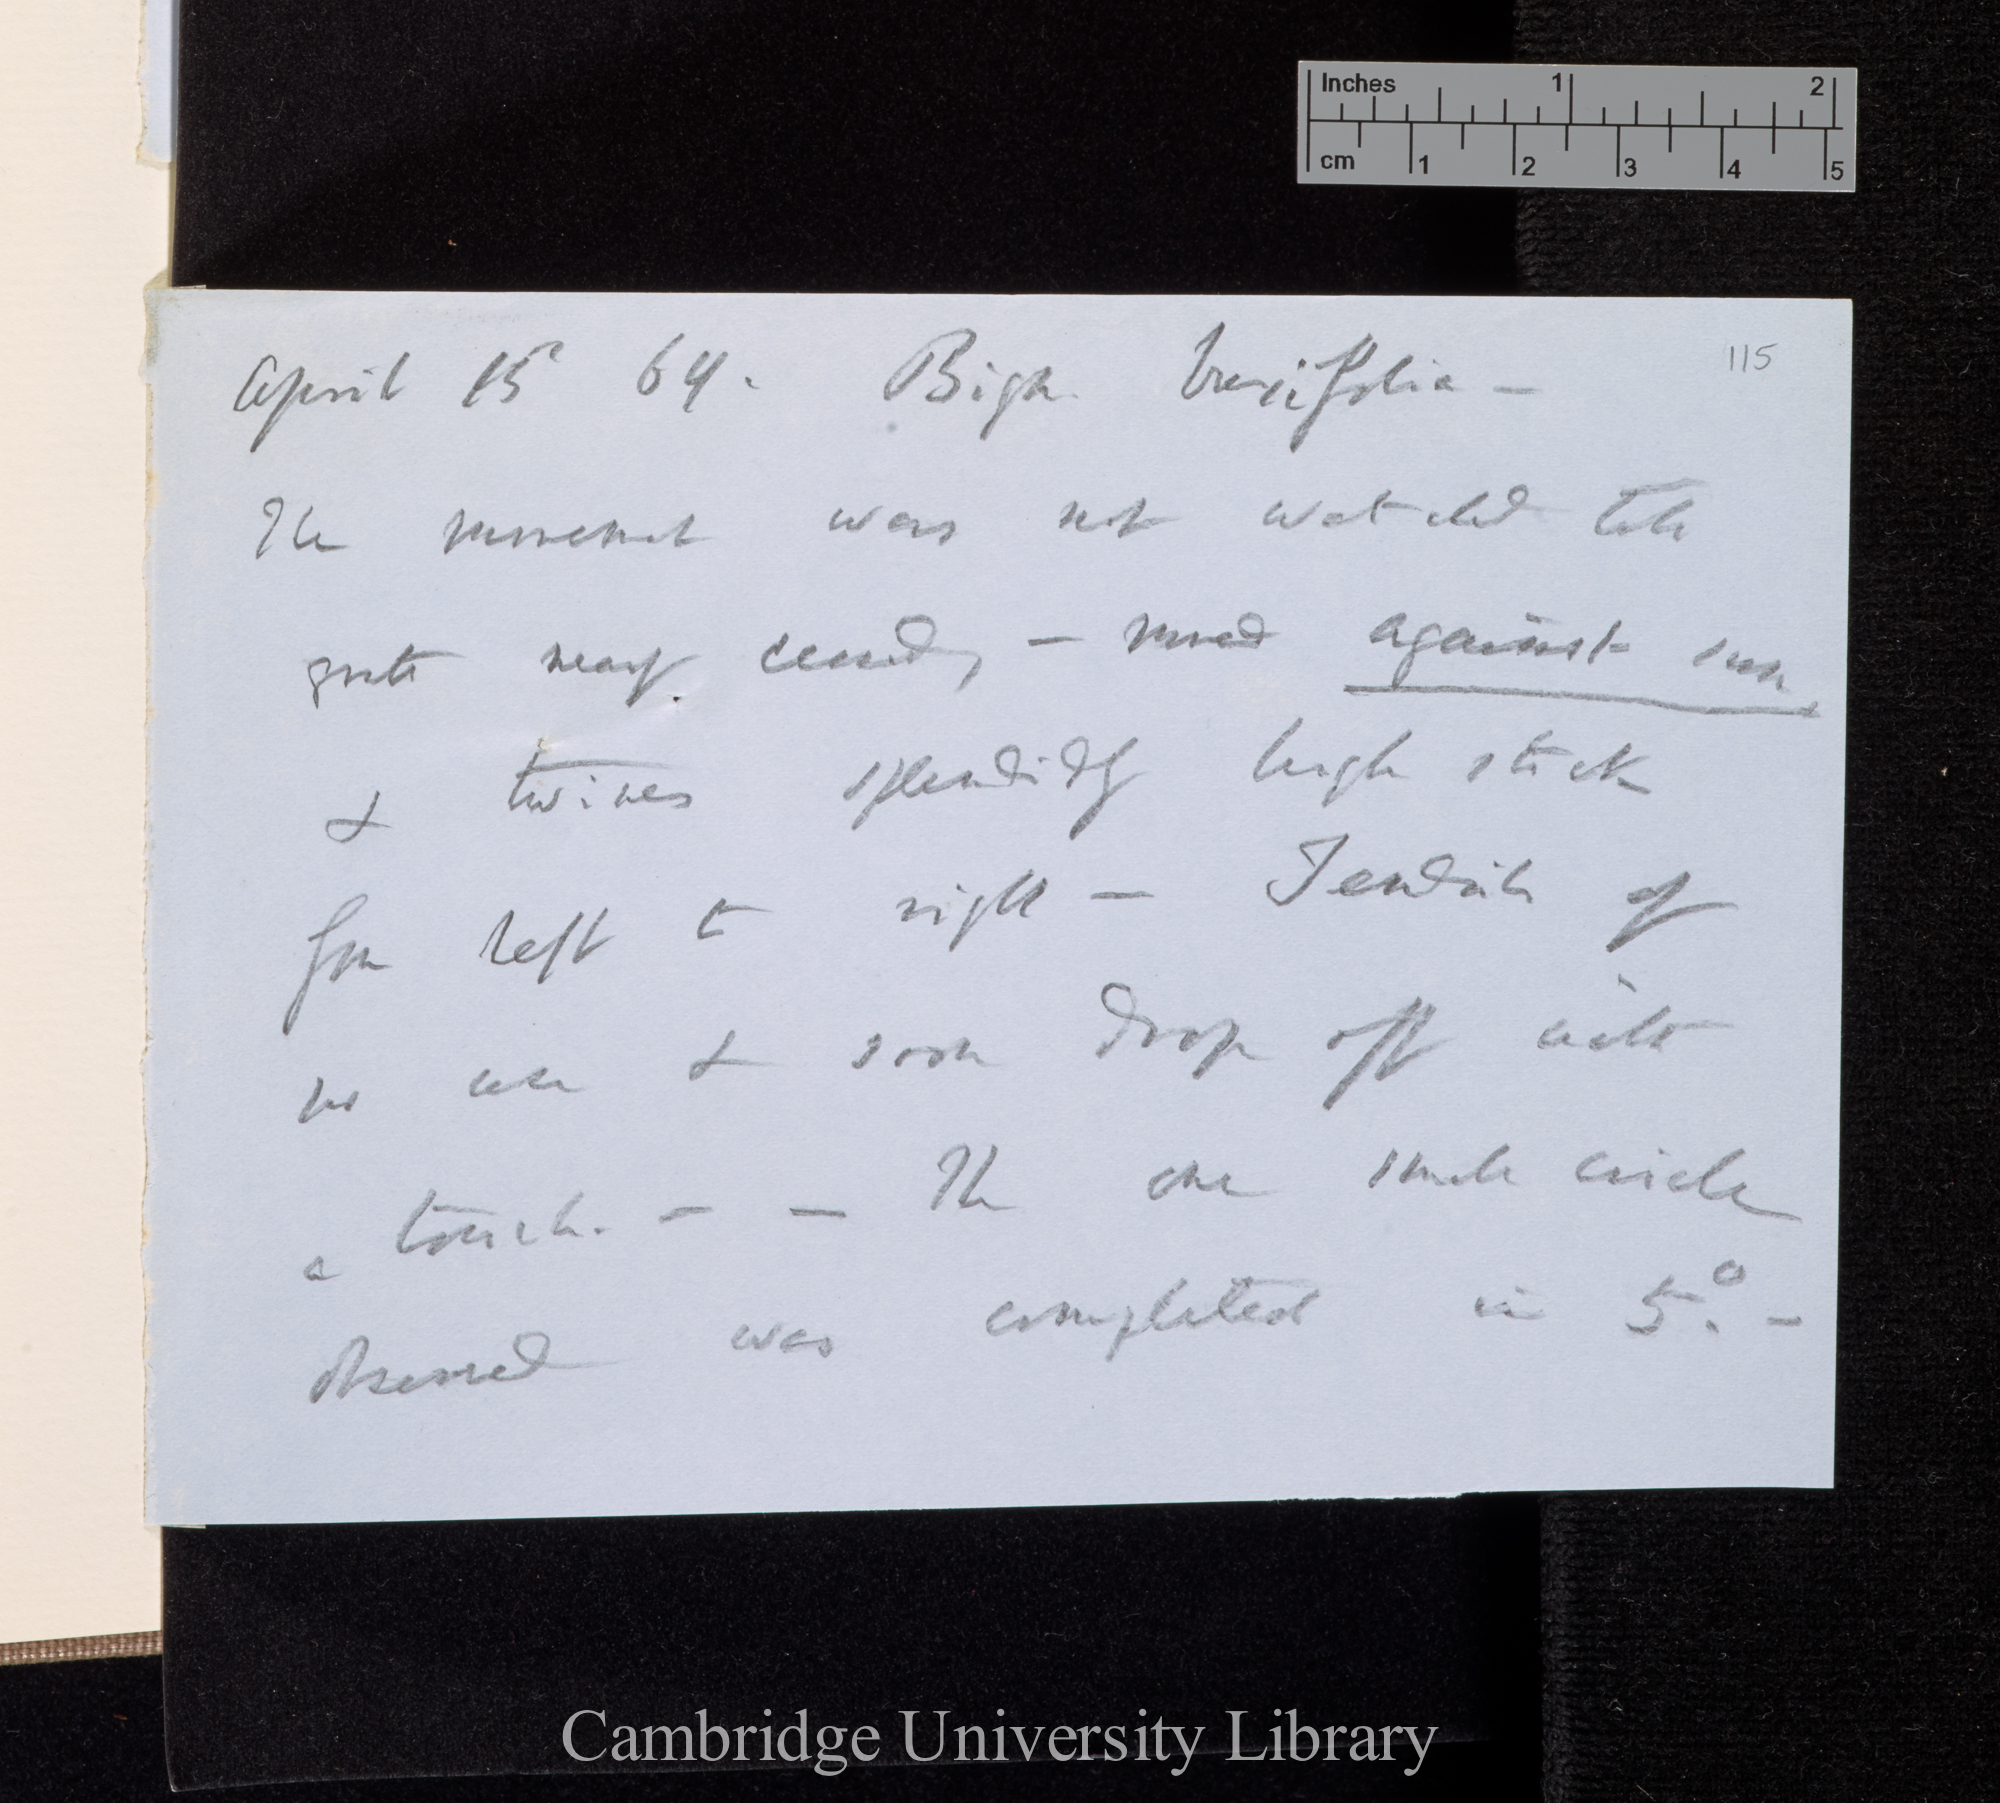 Inches 1 2
cm 1 2 3 4 5
115
April 15 64. Bign. buxifolia —
The movement was not watched till
growth nearly ceased, — moved against sun
& twines splendidly high stick
from left to right — Tendrils of
no use & soon drop off with
a touch. — — The one small circle
observed was completed in 5.° —
Cambridge University Library